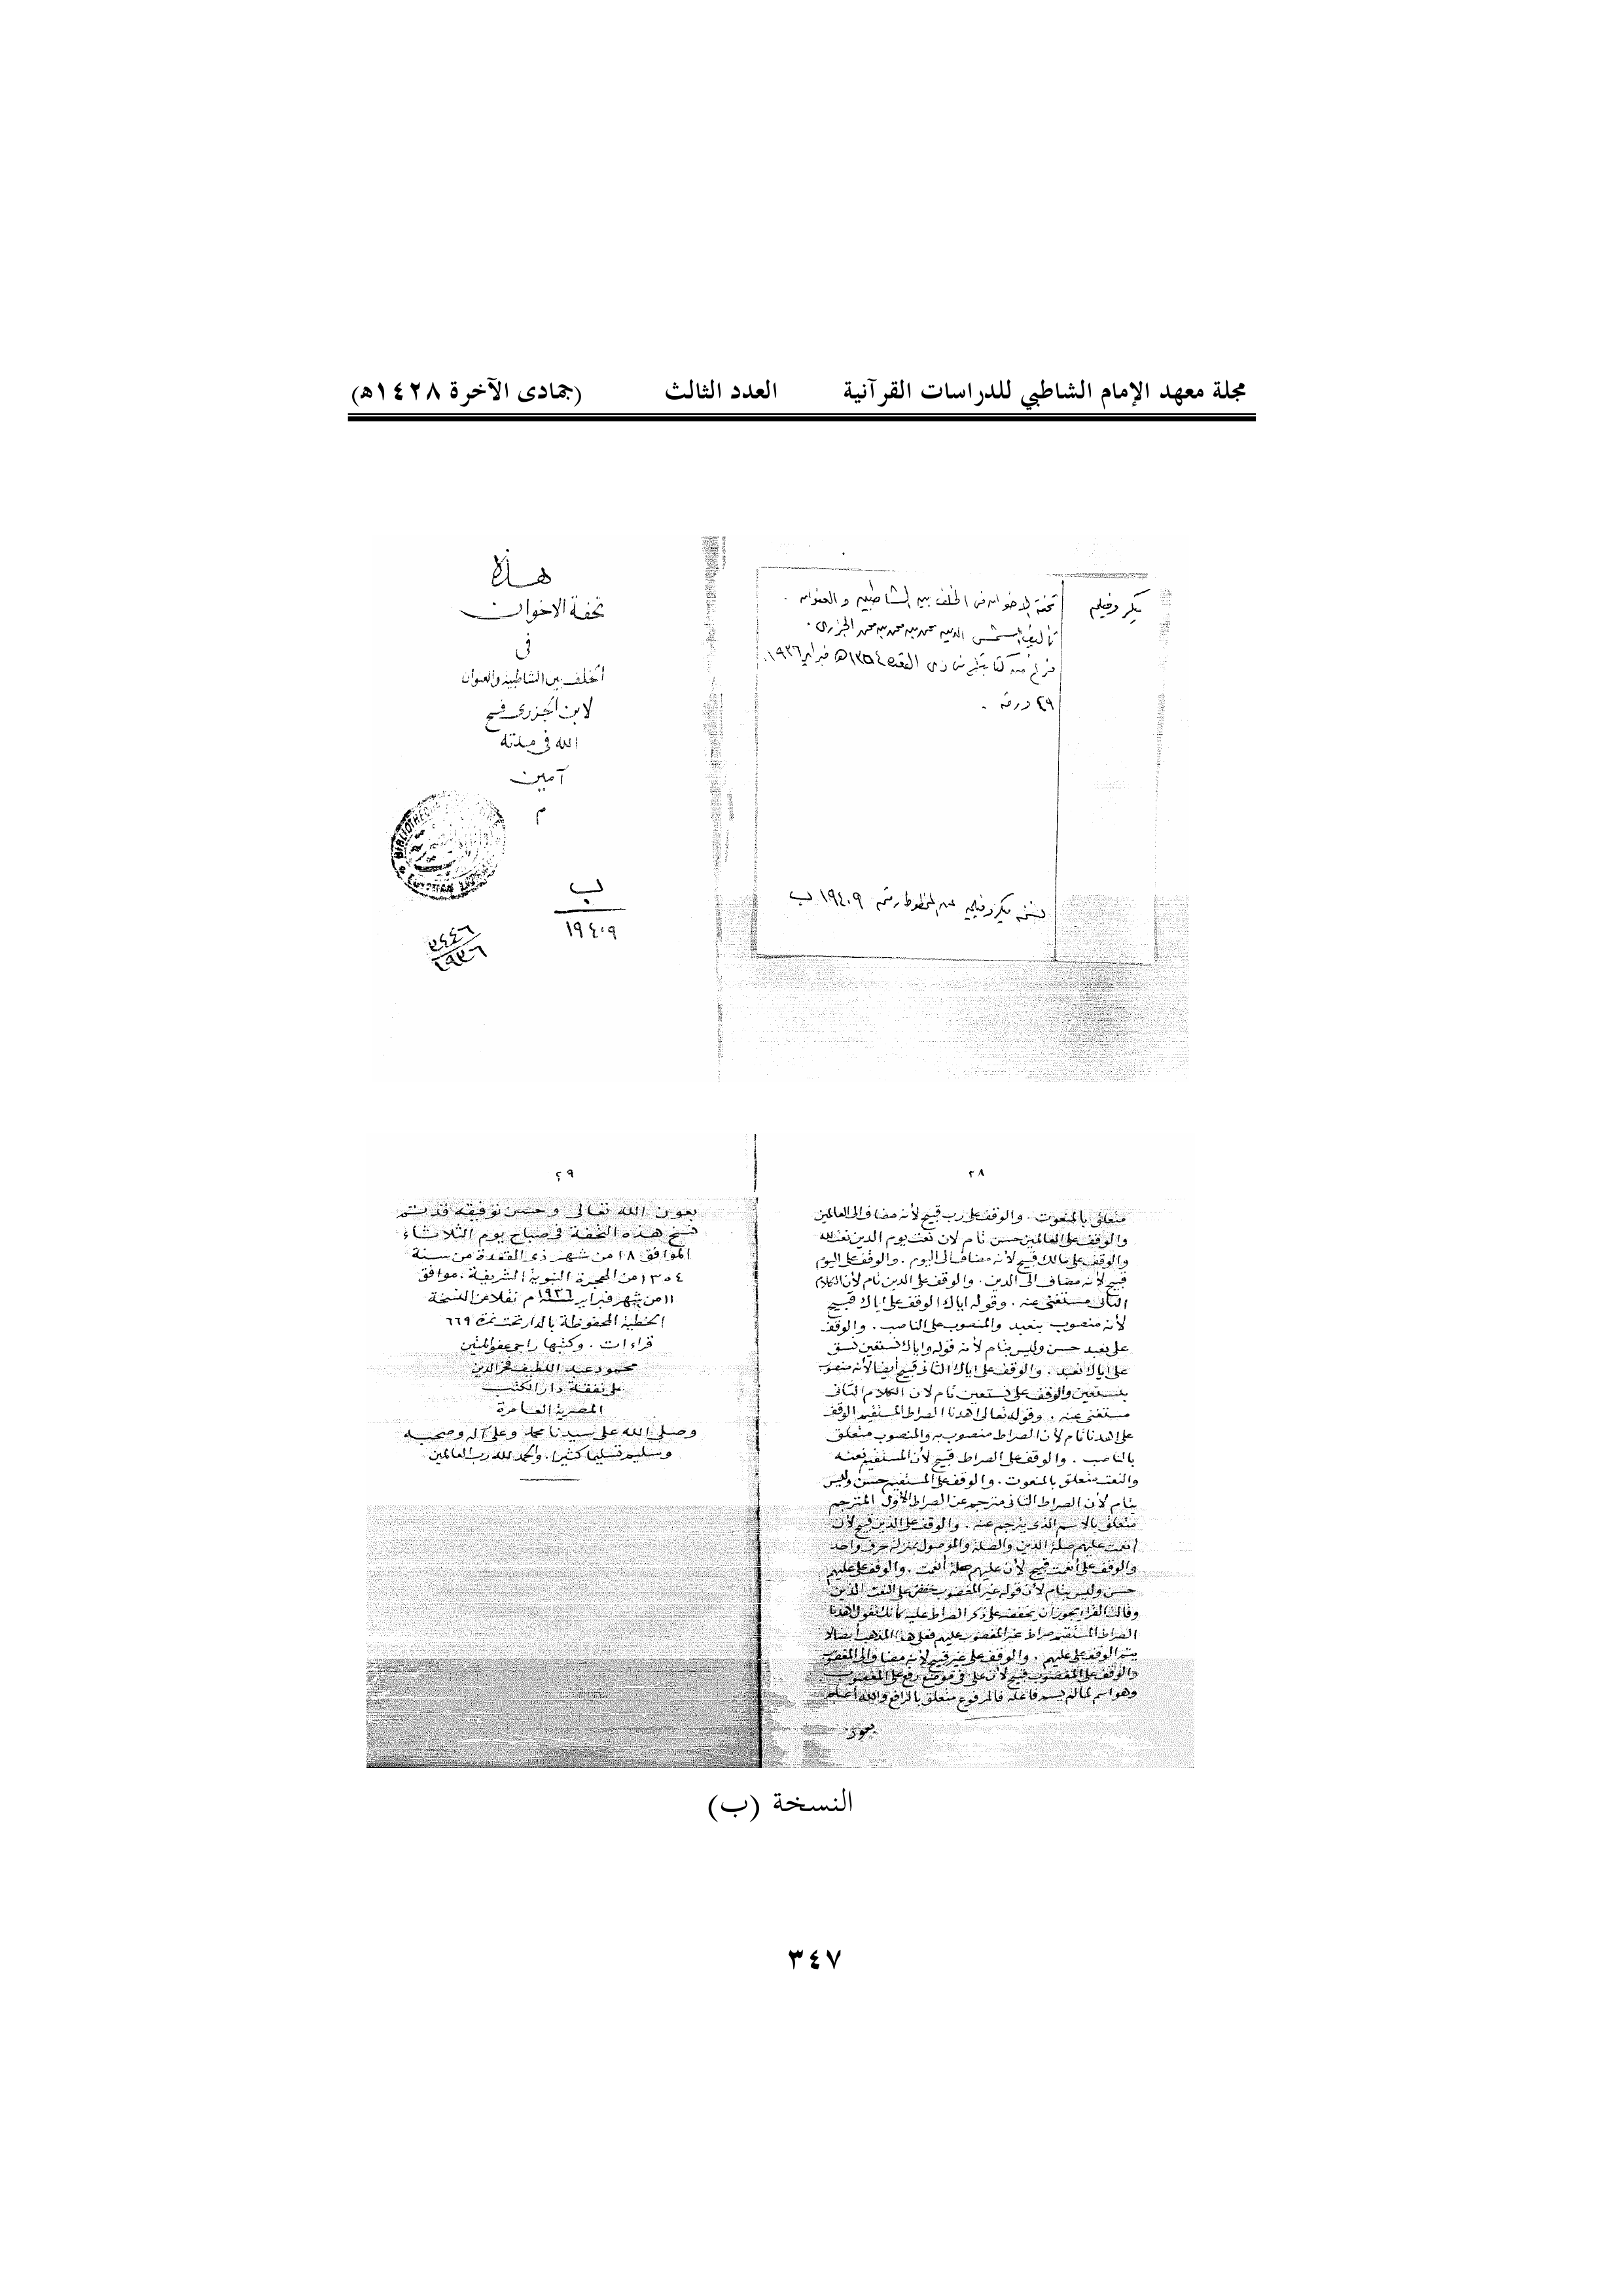 مجلة معهد الإمام الشاطبي للدراسات القرآنية العدد الثالث (جمادى الآخرة ١٤٢٨هـ)
ميكروفيلم
تحفة الإخوان فى الخلف بين الشاطبية والعنوان .
تأليف شمس الدين محمد بن محمد بن محمد الجزرى .
فرغ منه كتابة فى ذى القعدة ١٣٥٤هـ فبراير ١٩٣٦.
٢٩ ورقة .
نسخة ميكروفيلمية عن المخطوط رقم ١٩٤٠٩ ب
هذه
تحفة الاخوان
فى
الخلف بين الشاطبية والعنوان
لابن الجزرى فسح
الله فى مدته
آمين
م
ب
١٩٤٠٩
٢٤٤٦
١٩٣٦
٢٨
متعلق بالمنعوت . والوقف على رب قبيح لأنه مضاف الى العالمين
والوقف على العالمين حسن تام لان نعت يوم الدين نعت لله
والوقف على مالك قبيح لأنه مضاف الى اليوم . والوقف على اليوم
قبيح لأنه مضاف الى الدين . والوقف على الدين تام لأن الكلام
الثانى مستغنى عنه . وقوله اياك الوقف على اياك قبيح
لأنه منصوب بنعبد والمنصوب على الناصب . والوقف
على نعبد حسن وليس بتام لأنه قوله واياك نستعين نسق
على اياك نعبد . والوقف على اياك الثانى قبيح أيضا لأنه منصوب
بنستعين والوقف على نستعين تام لان الكلام الثانى
مستغنى عنه . وقوله تعالى اهدنا الصراط المستقيم الوقف
على اهدنا تام لأن الصراط منصوب به والمنصوب متعلق
بالناصب . والوقف على الصراط قبيح لأن المستقيم نعته
والنعت متعلق بالمنعوت . والوقف على المستقيم حسن وليس
بتام لأن الصراط الثانى مترجم عن الصراط الأول المترجم
متعلق بالاسم الذى يترجم عنه . والوقف على الذين قبيح لأن
أنعمت عليهم صلة الذين والصلة والموصول بمنزلة حرف واحد
والوقف على أنعمت قبيح لأن عليهم صلة أنعمت . والوقف على عليهم
حسن وليس بتام لأن قوله غير المغضوب خفض على النعت الذين
وقال الفراء يجوز أن يخفضه على ذكر الصراط عليه كأنك تقول اهدنا
الصراط المستقيم صراط غير المغضوب عليهم فعلى هذا المذهب أيضا لا
يتم الوقف على عليهم . والوقف على غير قبيح لأنه مضاف الى المغضوب
والوقف على المغضوب قبيح لأن على فى موضع رفع على المغضوب
وهو اسم لما لم يسم فاعله فالمرفوع متعلق بالرافع والله أعلم
بعون
٢٩
بعون الله تعالى وحسن توفيقه قد تم
نسخ هذه التحفة فى صباح يوم الثلاثاء
الموافق ١٨ من شهر ذى القعدة من سنة
١٣٥٤ من الهجرة النبوية الشريفة . موافق
١١ من شهر فبراير سنة ١٩٣٦ م نقلا عن النسخة
الخطية المحفوظة بالدار تحت نمرة ٦٦٩
قراءات . وكتبها راجى عفو المنين
محمود عبد اللطيف فخر الدين
على نفقة دار الكتب
المصرية العامرة
وصلى الله على سيدنا محمد وعلى آله وصحبه
وسليم تسليما كثيرا . والحمد لله رب العالمين
النسخة (ب)
٣٤٧